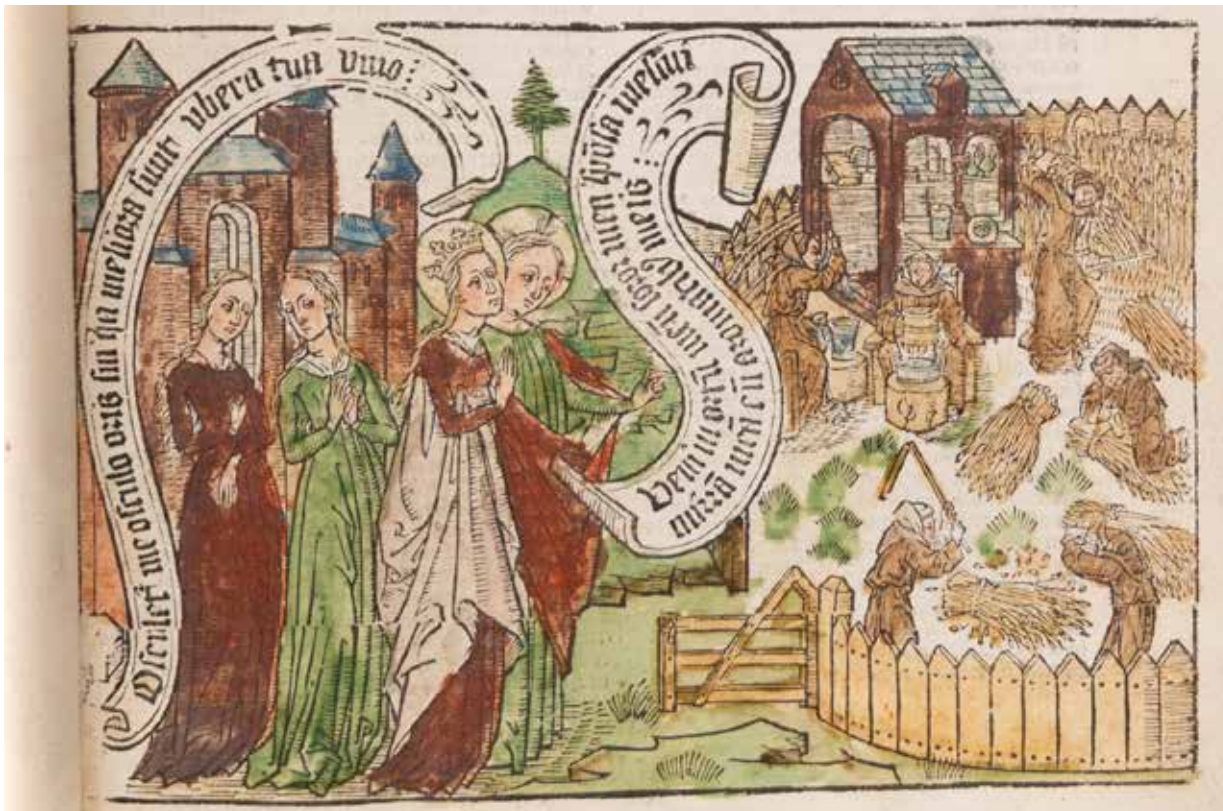 Osculet᷑ me osculo oris sui qꝛ meliora sunt vbera tua vino:
Veni in ortū meū soror mea spōsa messui
mirrā meā cū aromatibꝫ meis :